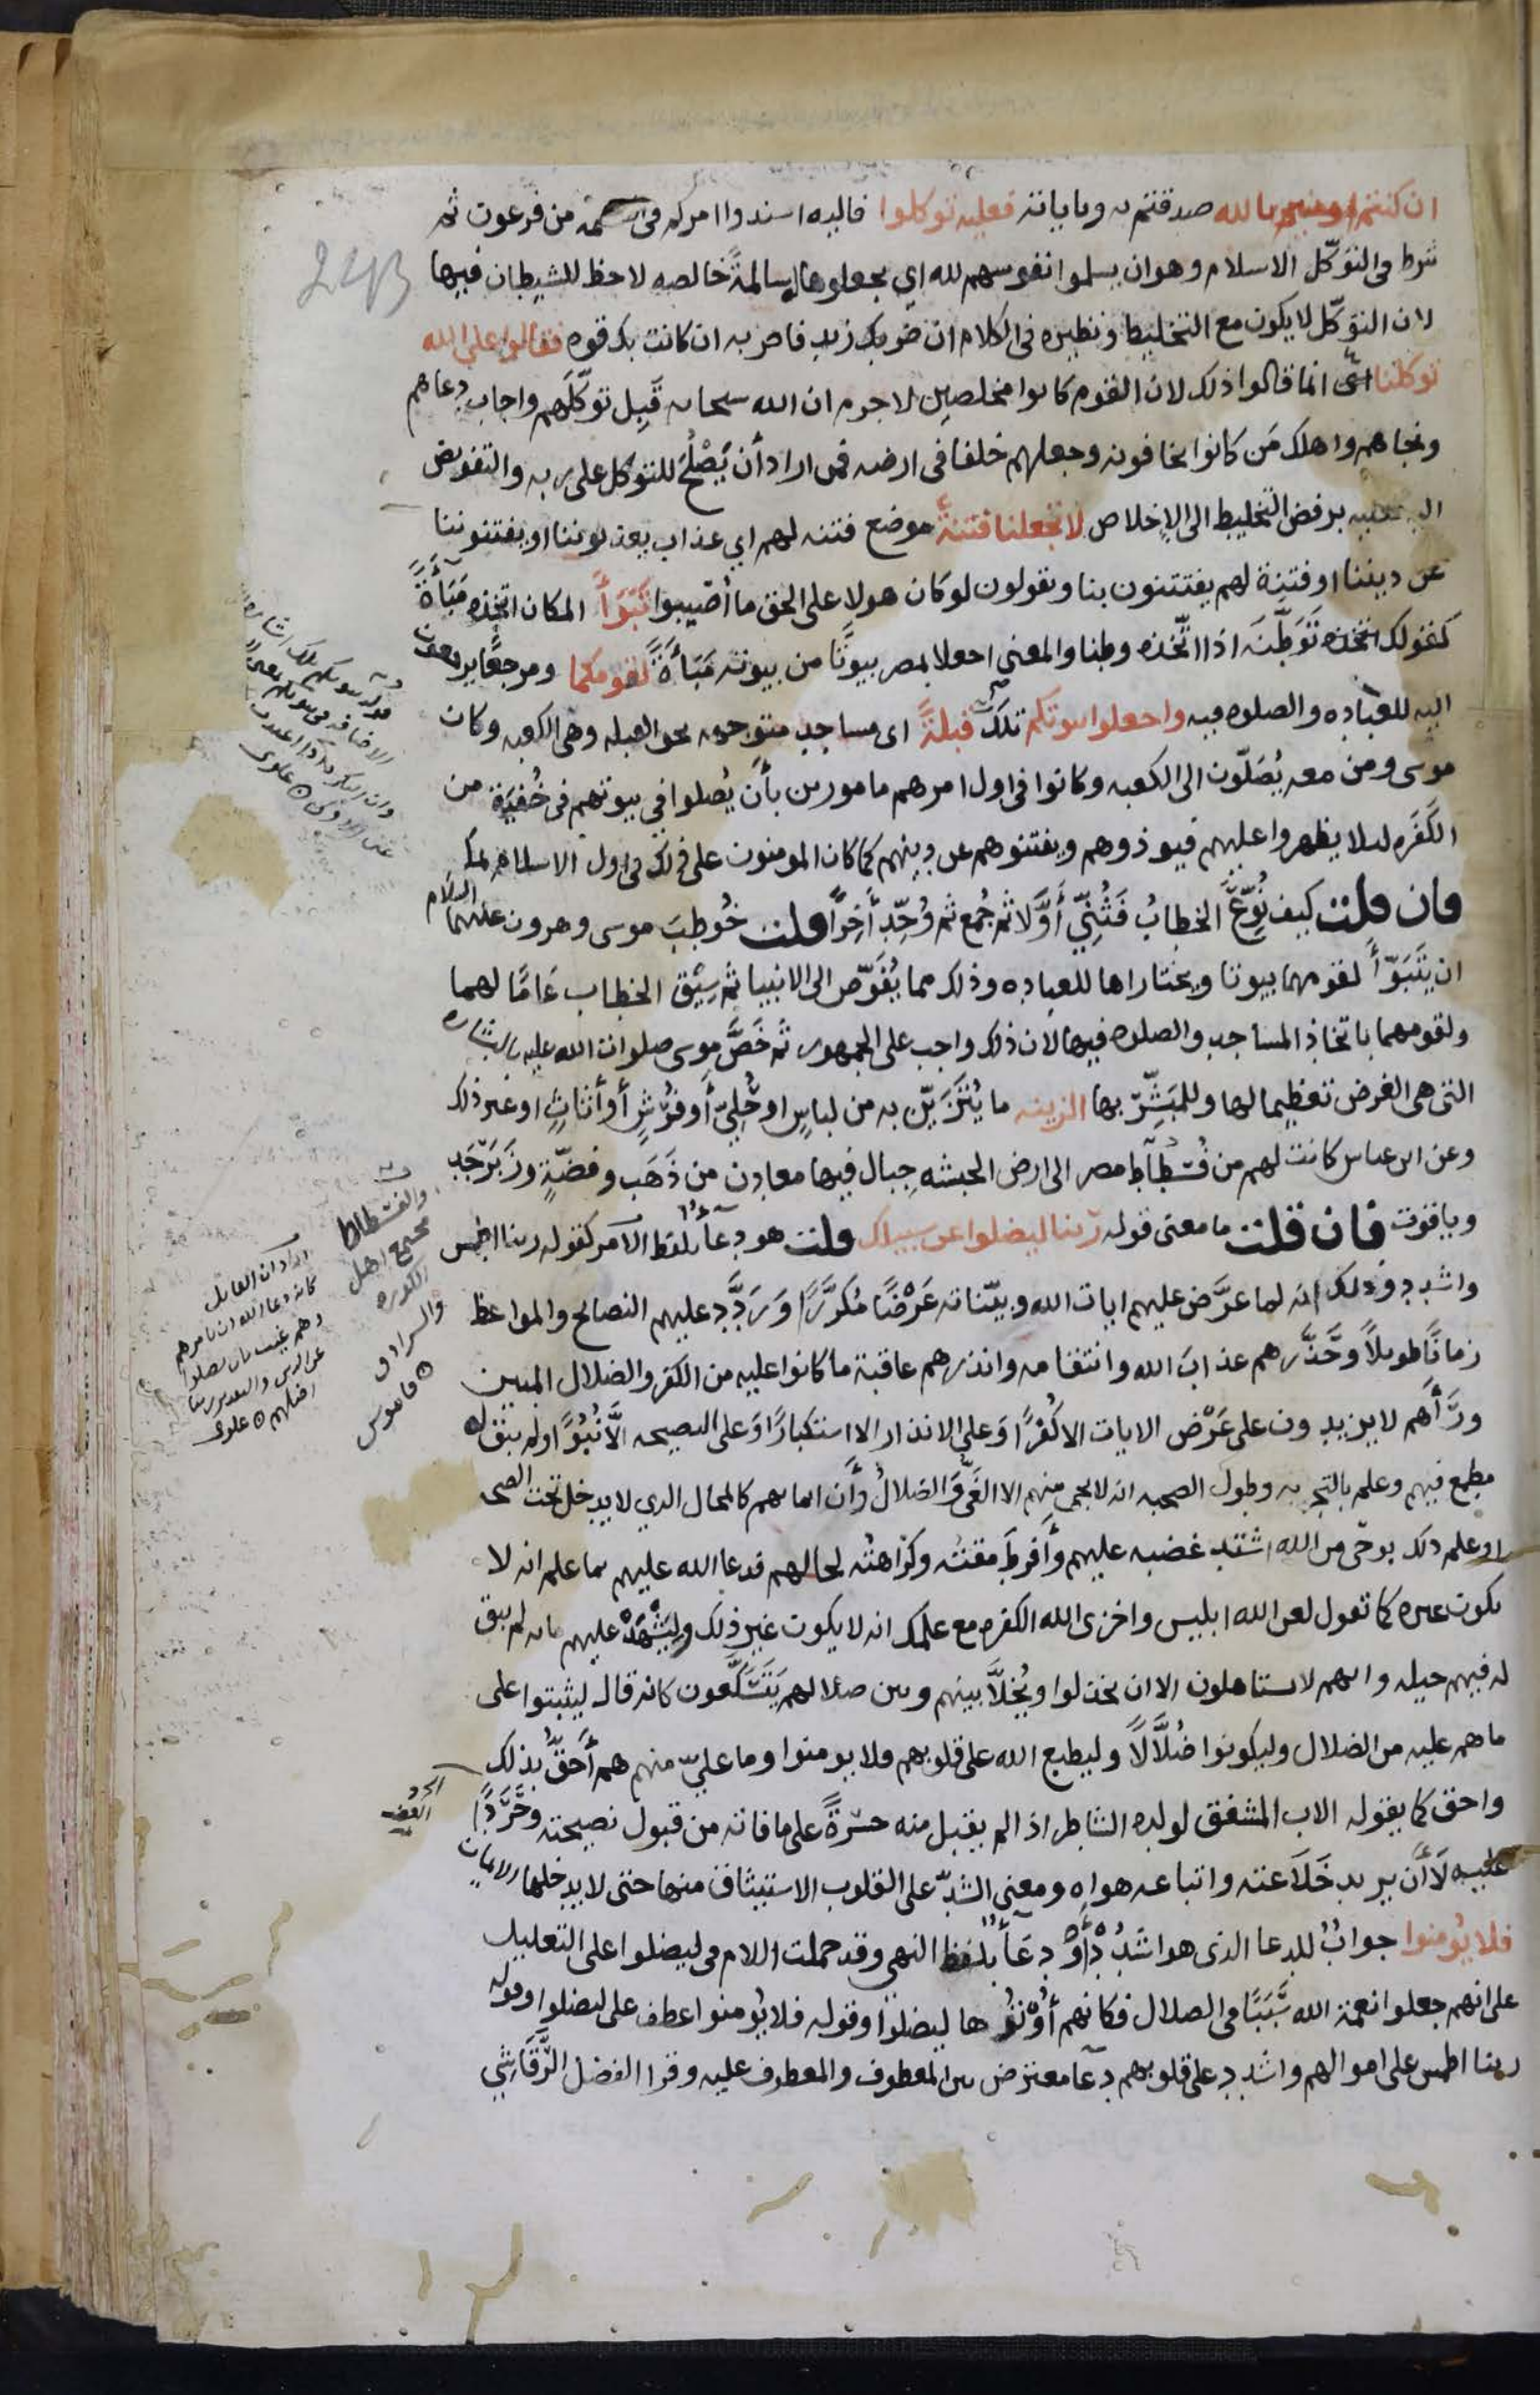 ان كنتم امنتم بالله صدقتم به وباياته فعليه توكلوا فاليه اسندوا امركم في العصمة من فرعون ثم
شرط في التوكّل الاسلام وهو ان يسلموا نفوسهم لله اي يجعلوها سالمةً خالصه لا حظ للشيطان فيها
لان التوكّل لا يكون مع التخليط ونظيره في الكلام ان ضربك زيد فاضربه ان كانت بك قوه فقالوا على الله
توكلنا انما قالوا ذلك لان القوم كانوا مخلصين لا جرم ان الله سبحانه قَبِل توكّلَهم واجاب دعاهم
ونجاهم واهلك مَن كانوا يخافونه وجعلهم خلفا في ارضه فمن اراد أن يَصْلُحَ للتوكل على ربه والتفويض
اليه فعليه برفض التخليط الى الإخلاص لا تجعلنا فتنةً موضع فتنه لهم اي عذاب يعذبوننا او يفتنوننا
عن ديننا او فتنة لهم يفتتنون بنا ويقولون لو كان هولا على الحق ما أُصيبوا تَبَوَّأَ المكان اتخذه مَبَاءَةً
كقولك تَوَطَّنَه اذا اتّخذه وطنا والمعنى اجعلا بمصر بيوتًا من بيوته مَبَاءَةً لقومكما ومرجعًا يرجعون
اليه للعباده والصلوه فيه واجعلوا بيوتكم تلك قبلةً اى مساجد متوجهه نحو القبله وهي الكعبه وكان
موسى ومن معه يُصَلّون الى الكعبه وكانوا في اول امرهم مامورين بأن يُصلوا في بيوتهم في خُفْيَة من
الكَفَره لىلا يظهروا عليهم فيوذوهم ويفتنوهم عن دينهم كما كان المومنون على ذلك في اول الاسلام بمكه
فان قلت كيف نُوِّعَ الخطابُ فَثُنِّيَ أَوَّلا ثم جُمع ثم وُحِّد أخِراً قلت خُوطِبَ موسى وهرون عليهما السلام
ان يَتَبَوَّأ لقومهما بيوتا ويختاراها للعباده وذلك مما يُفَوَّض الى الانبيا ثم سِيْق الخطاب عَامًّا لهما
ولقومهما باتخاذ المساجد والصلوه فيها لان ذلك واجب على الجمهور ثم خَصَّ موسى صلوات الله عليه بالبشاره
التى هي الغرض تعظيما لها وللمبَشِّر بها الزينه ما يُتَزَيّن به من لباسٍ او حُلِيّ أو فُرُشٍ أو أثاثٍ او غير ذلك
وعن ابن عباس كانت لهم من فُسْطَاط مصر الى ارض الحبشه جبال فيها معادن من ذَهَب وفضّةٍ وزَبَرْجَد
وياقوت فان قلت ما معنى قوله ربنا ليضلوا عن سبيلك قلت هو دعاءٌ بلفظ الامر كقوله ربنا اطمس
واشدد وذلك انه لما عَرَض عليهم ايات الله وبيّناته عَرْضًا مُكَرَّرًا وَرَدَّدَ عليهم النصائح والمواعظ
زمانًا طويلاً وحَذَّرهم عذابَ الله وانتقامه وانذرهم عاقبة ما كانوا عليه من الكفر والضلال المبين
ورَأَهم لا يزيدون على عَرْض الايات الا كُفْرًا وَعلى الانذار الا استكبارًا وَعلى النصيحه الاَّ نُبُوًّا ولم يبق له
مطمع فيهم وعلم بالتجربه وطول الصحبه انه لا يجي منهم الا الغَيُّ وَالضلالُ وأَن ايمانهم كالمحال الذي لا يدخل تحت الصحه
او علم ذلك بوحي من الله اشتد غضبه عليهم وأفرطَ مقته وكراهته لحالهم فدعا الله عليهم بما علم انه لا
يكون غيره كما تقول لعن الله ابليس واخزى الله الكفره مع علمك انه لا يكون غير ذلك وليَشْهَدْ عليهم بانه لم يبق
له فيهم حيله وانهم لا يستاهلون الا ان يخذلوا ويُخلَّا بينهم وبين ضلالهم يَتَسَكَّعون كانه قال ليثبتوا على
ما هم عليه من الضلال وليكونوا ضُلَّالاً وليطبع الله على قلوبهم فلا يومنوا وما عليّ منهم هم أَحَقُّ بذلك
واحق كما يقوله الاب المشفق لولده الشاطر اذا لم يقبل منه حسْرةً على ما فاته من قبول نصيحته وحَرَدًا
عليه لَا أن يريد خَلَاعته واتباعه هواه ومعنى الشدّ على القلوب الاستيثاق منها حتى لا يدخلها الايمان
فلا يُومنوا جوابٌ للدعا الذى هو اشدُدْ أَوْ دعَاءٌ بلفظ النهي وقد حملت اللام في ليضلوا على التعليل
على انهم جعلوا نعمة الله سَبَبًا في الضلال فكانهم أُوْتُوها ليضلوا وقوله فلا يُومنوا عطف على ليضلوا وقوله
ربنا اطمس على اموالهم واشدد على قلوبهم دعَا معترض بين المعطوف والمعطوف عليه وقرا الفضل الرَّقَاشِيّ
والفسطاط
مجمع اهل
الكوره
والسرادق
قاموس
الحرد
الغضب